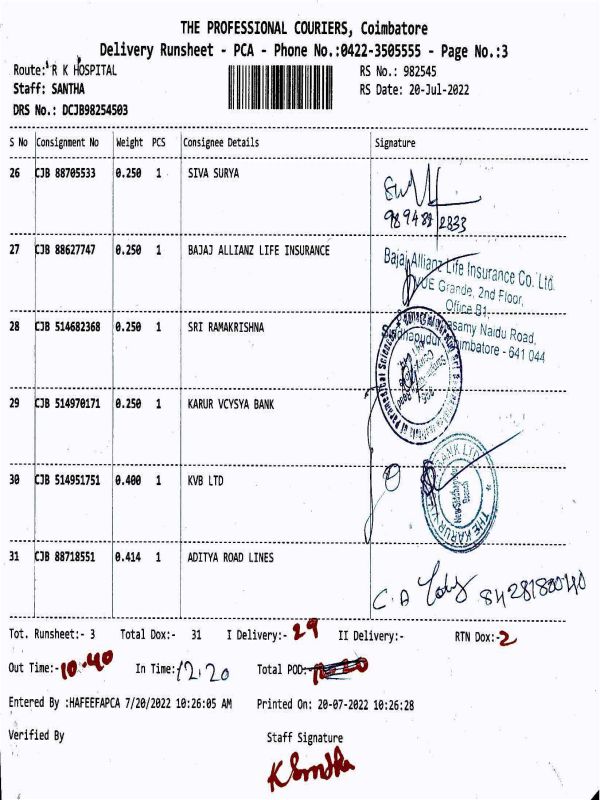 THE PROFESSIONAL COURIERS, Coimbatore
Delivery Runsheet - PCA - Phone No.:0422-3505555 - Page No.:3
Route: R K HOSPITAL RS No.: 982545
Staff: SANTHA RS Date: 20-Jul-2022
DRS No.: DCJB98254503
S No Consignment No Weight PCS Consignee Details Signature
26 CJB 88705533 0.250 1 SIVA SURYA
27 CJB 88627747 0.250 1 BAJAJ ALLIANZ LIFE INSURANCE
Bajaj Allianz Life Insurance Co. Ltd.
VUE Grande, 2nd Floor,
Office B1,
28 CJB 514682368 0.250 1 SRI RAMAKRISHNA
asamy Naidu Road,
imbatore - 641 044
29 CJB 514970171 0.250 1 KARUR VCYSYA BANK
30 CJB 514951751 0.400 1 KVB LTD
THE KARUR BANK LTD
31 CJB 88718551 0.414 1 ADITYA ROAD LINES
C.A 8428180040
Tot. Runsheet:- 3 Total Dox:- 31 I Delivery:- 29 II Delivery:- RTN Dox:- 2
Out Time:- 10.40 In Time: 12.20 Total POD:-
Entered By :HAFEEFAPCA 7/20/2022 10:26:05 AM Printed On: 20-07-2022 10:26:28
Verified By Staff Signature
K Santha